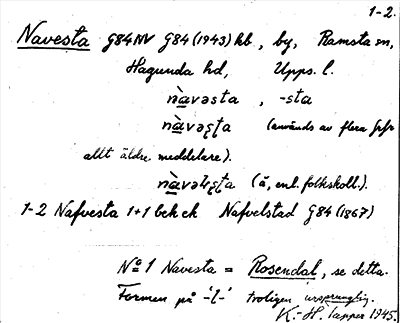 1-2.
Navesta G84NV G84(1943) kb, by, Ramsta sn,
Hagunda hd, Upps. l.
nàvəsta, -sta
nàvəʂʈa (används av flera
allt äldre meddelare).
(ä, enl. folkskoll.).
1-2 Nafvesta 1+1 bek ek Nafvelstad G84 (1867)
No 1 Navesta = Rosendal, se detta.
Formen på -l- troligen ursprunglig.
K.-H. 1945.